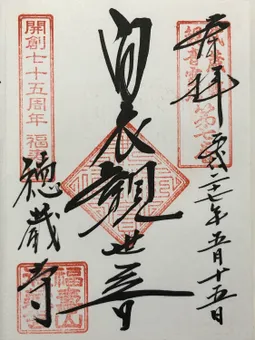 奉拝 平成二十七年五月十五日
白衣觀世音
徳蔵寺
開創七十五周年